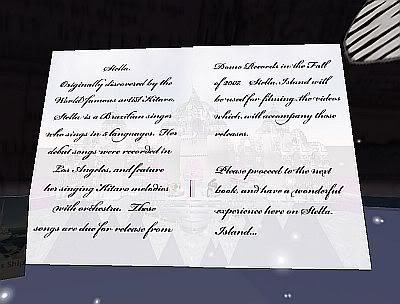 Stella.
Originally discovered by the
World famous artist Kitaro,
Stella is a Brazilian singer
who sings in 5 languages. Her
debut songs were recorded in
Los Angeles, and feature
her singing Kitaro melodies
with orchestra. These
songs are due for release from
Domo Records in the Fall
of 2007. Stella Island will
be used for filming the videos
which will accompany those
releases.
Please proceed to the next
book, and have a wonderful
experience here on Stella
Island...